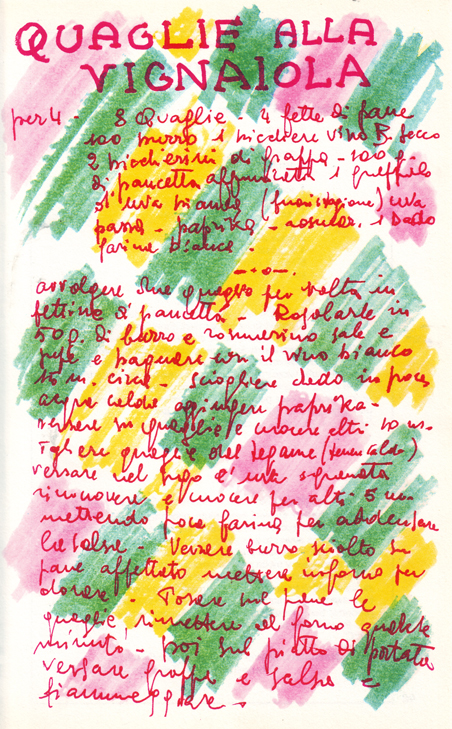 QUAGLIE ALLA
VIGNAIOLA
per 4 - 8 Quaglie - 4 fette di pane
100 burro 1 bicchiere vino B. secco
2 bicchierini di grappa - 100 g
di pancetta affumicata 1 grappolo
d'uva bianca (fuori stagione) uva
passa - paprika - rosmar. 1 Dado
farina bianca -
avvolgere due quaglie per volta in
fettine di pancetta - Rosolarle in
50 g. di burro e rosmarino sale e
pepe e bagnare con il vino bianco
15 m. circa - sciogliere dado in poca
acqua calda aggiungere paprika -
versare su quaglie e cuocere altri 10 m.
Togliere quaglie dal tegame (tenere caldo)
versare nel sugo l'uva sgranata
rimuovere e cuocere per altri 5 m
mettendo poca farina per addensare
la salsa - Versare burro sciolto su
pane affettato mettere in forno per
dorare - Posare sul pane le
quaglie rimettere al forno qualche
minuto - poi sul piatto di portata
versare grappa e salsa e
fiammeggiare -